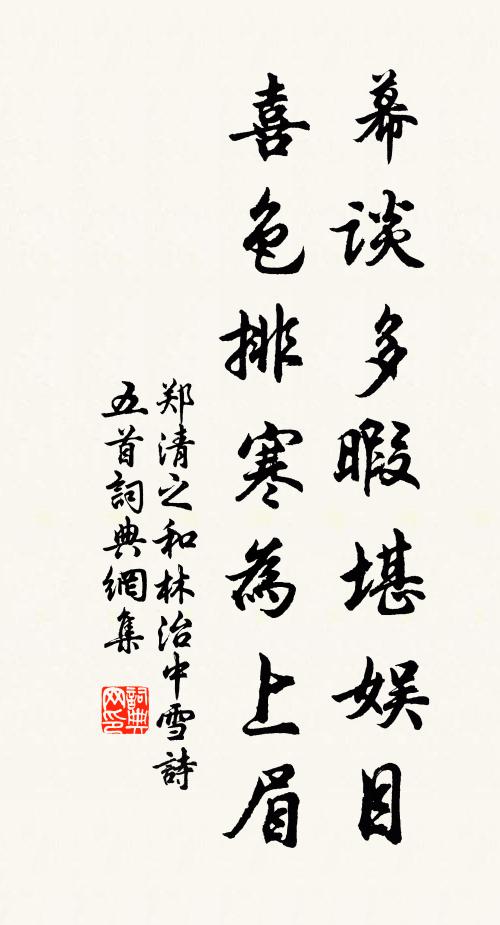 幕談多暇堪娛目
喜色排寒為上眉
郑清之和林治中雪詩
五首詞典網集
詞典
网印